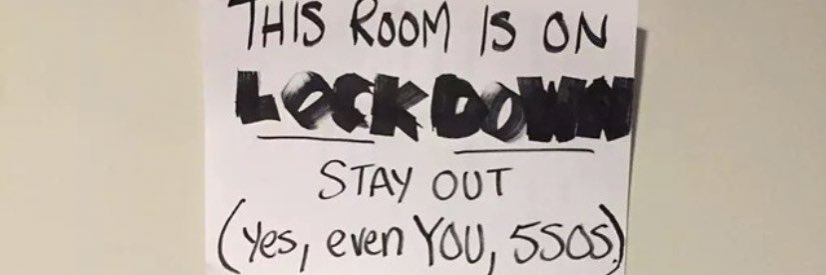 THIS ROOM IS ON
LOCKDOWN
STAY OUT
(Yes, even YOU, 5SOS.)